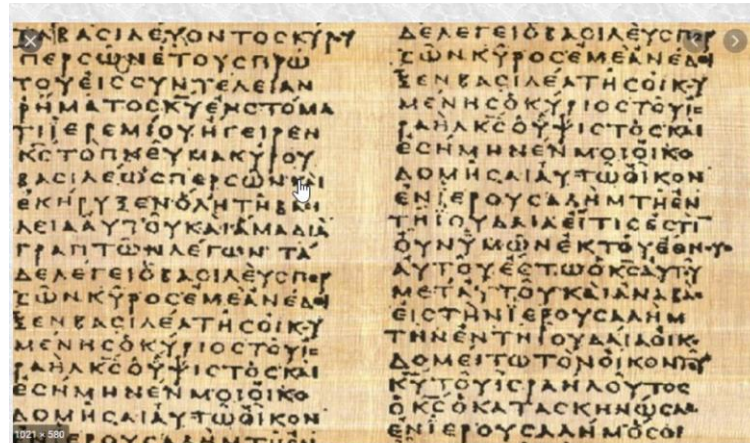 ΒΑCΙΛΕΥΟΝΤΟCΚΥΡΥ
ΠΕΡCΩΝΕΤΟΥCΠΡΩ
ΤΟΥΕΙCCΥΝΤΕΛΕΙΑΝ
ΡΗΜΑΤΟCΚΥΕΝCΤΟΜΑ
ΤΙΙΕΡΕΜΙΟΥΗΓΕΙΡΕΝ
ΚCΤΟΠΝΕΥΜΑΚΥΡΟΥ
ΒΑCΙΛΕΩCΠΕΡCΩΝΚΑΙ
ΕΚΗΡΥΞΕΝΟΛΗΤΗΒΑCΙ
ΛΕΙΑΑΥΤΟΥΚΑΙΑΜΑΔΙΑ
ΓΡΑΠΤΩΝΛΕΓΩΝΤΑ
ΔΕΛΕΓΕΙΟΒΑCΙΛΕΥCΠΕΡ
CΩΝΚΥΡΟCΕΜΕΑΝΕΔΕΙ
ΞΕΝΒΑCΙΛΕΑΤΗCΟΙΚΥ
ΜΕΝΗCΟΚΥΡΙΟCΤΟΥΙC
ΡΑΗΛΚCΟΥΨΙCΤΟCΚΑΙ
ΕCΗΜΗΝΕΝΜΟΙΟΙΚΟ
ΔΟΜΗCΑΙΑΥΤΩΟΙΚΟΝ
1021 × 580
ΔΕΛΕΓΕΙΟΒΑCΙΛΕΥCΠΕΡ
CΩΝΚΥΡΟCΕΜΕΑΝΕΔΕΙ
ΞΕΝΒΑCΙΛΕΑΤΗCΟΙΚΥ
ΜΕΝΗCΟΚΥΡΙΟCΤΟΥΙC
ΡΑΗΛΚCΟΥΨΙCΤΟCΚΑΙ
ΕCΗΜΗΝΕΝΜΟΙΟΙΚΟ
ΔΟΜΗCΑΙΑΥΤΩΟΙΚΟΝ
ΕΝΙΕΡΟΥCΑΛΗΜΤΗΕΝ
ΤΗΙΟΥΔΑΙΑΕΙΤΙCΕCΤΙ
ΟΥΝΥΜΩΝΕΚΤΟΥΕΘΝΥC
ΑΥΤΟΥΕCΤΩΟΚCΑΥΤΥ
ΜΕΤΑΥΤΟΥΚΑΙΑΝΑΒΑC
ΕΙCΤΗΝΙΕΡΟΥCΑΛΗΜ
ΤΗΝΕΝΤΗΙΟΥΔΑΙΑΟΙΚ
ΔΟΜΕΙΤΩΤΟΝΟΙΚΟΝΤΟΥ
ΚΥΤΟΥΙCΡΑΗΛΟΥΤΟC
ΟΚCΟΚΑΤΑCΚΗΝΩCΑC
ΕΝΙΕΡΟΥCΑΛΗΜΟCΟΙ